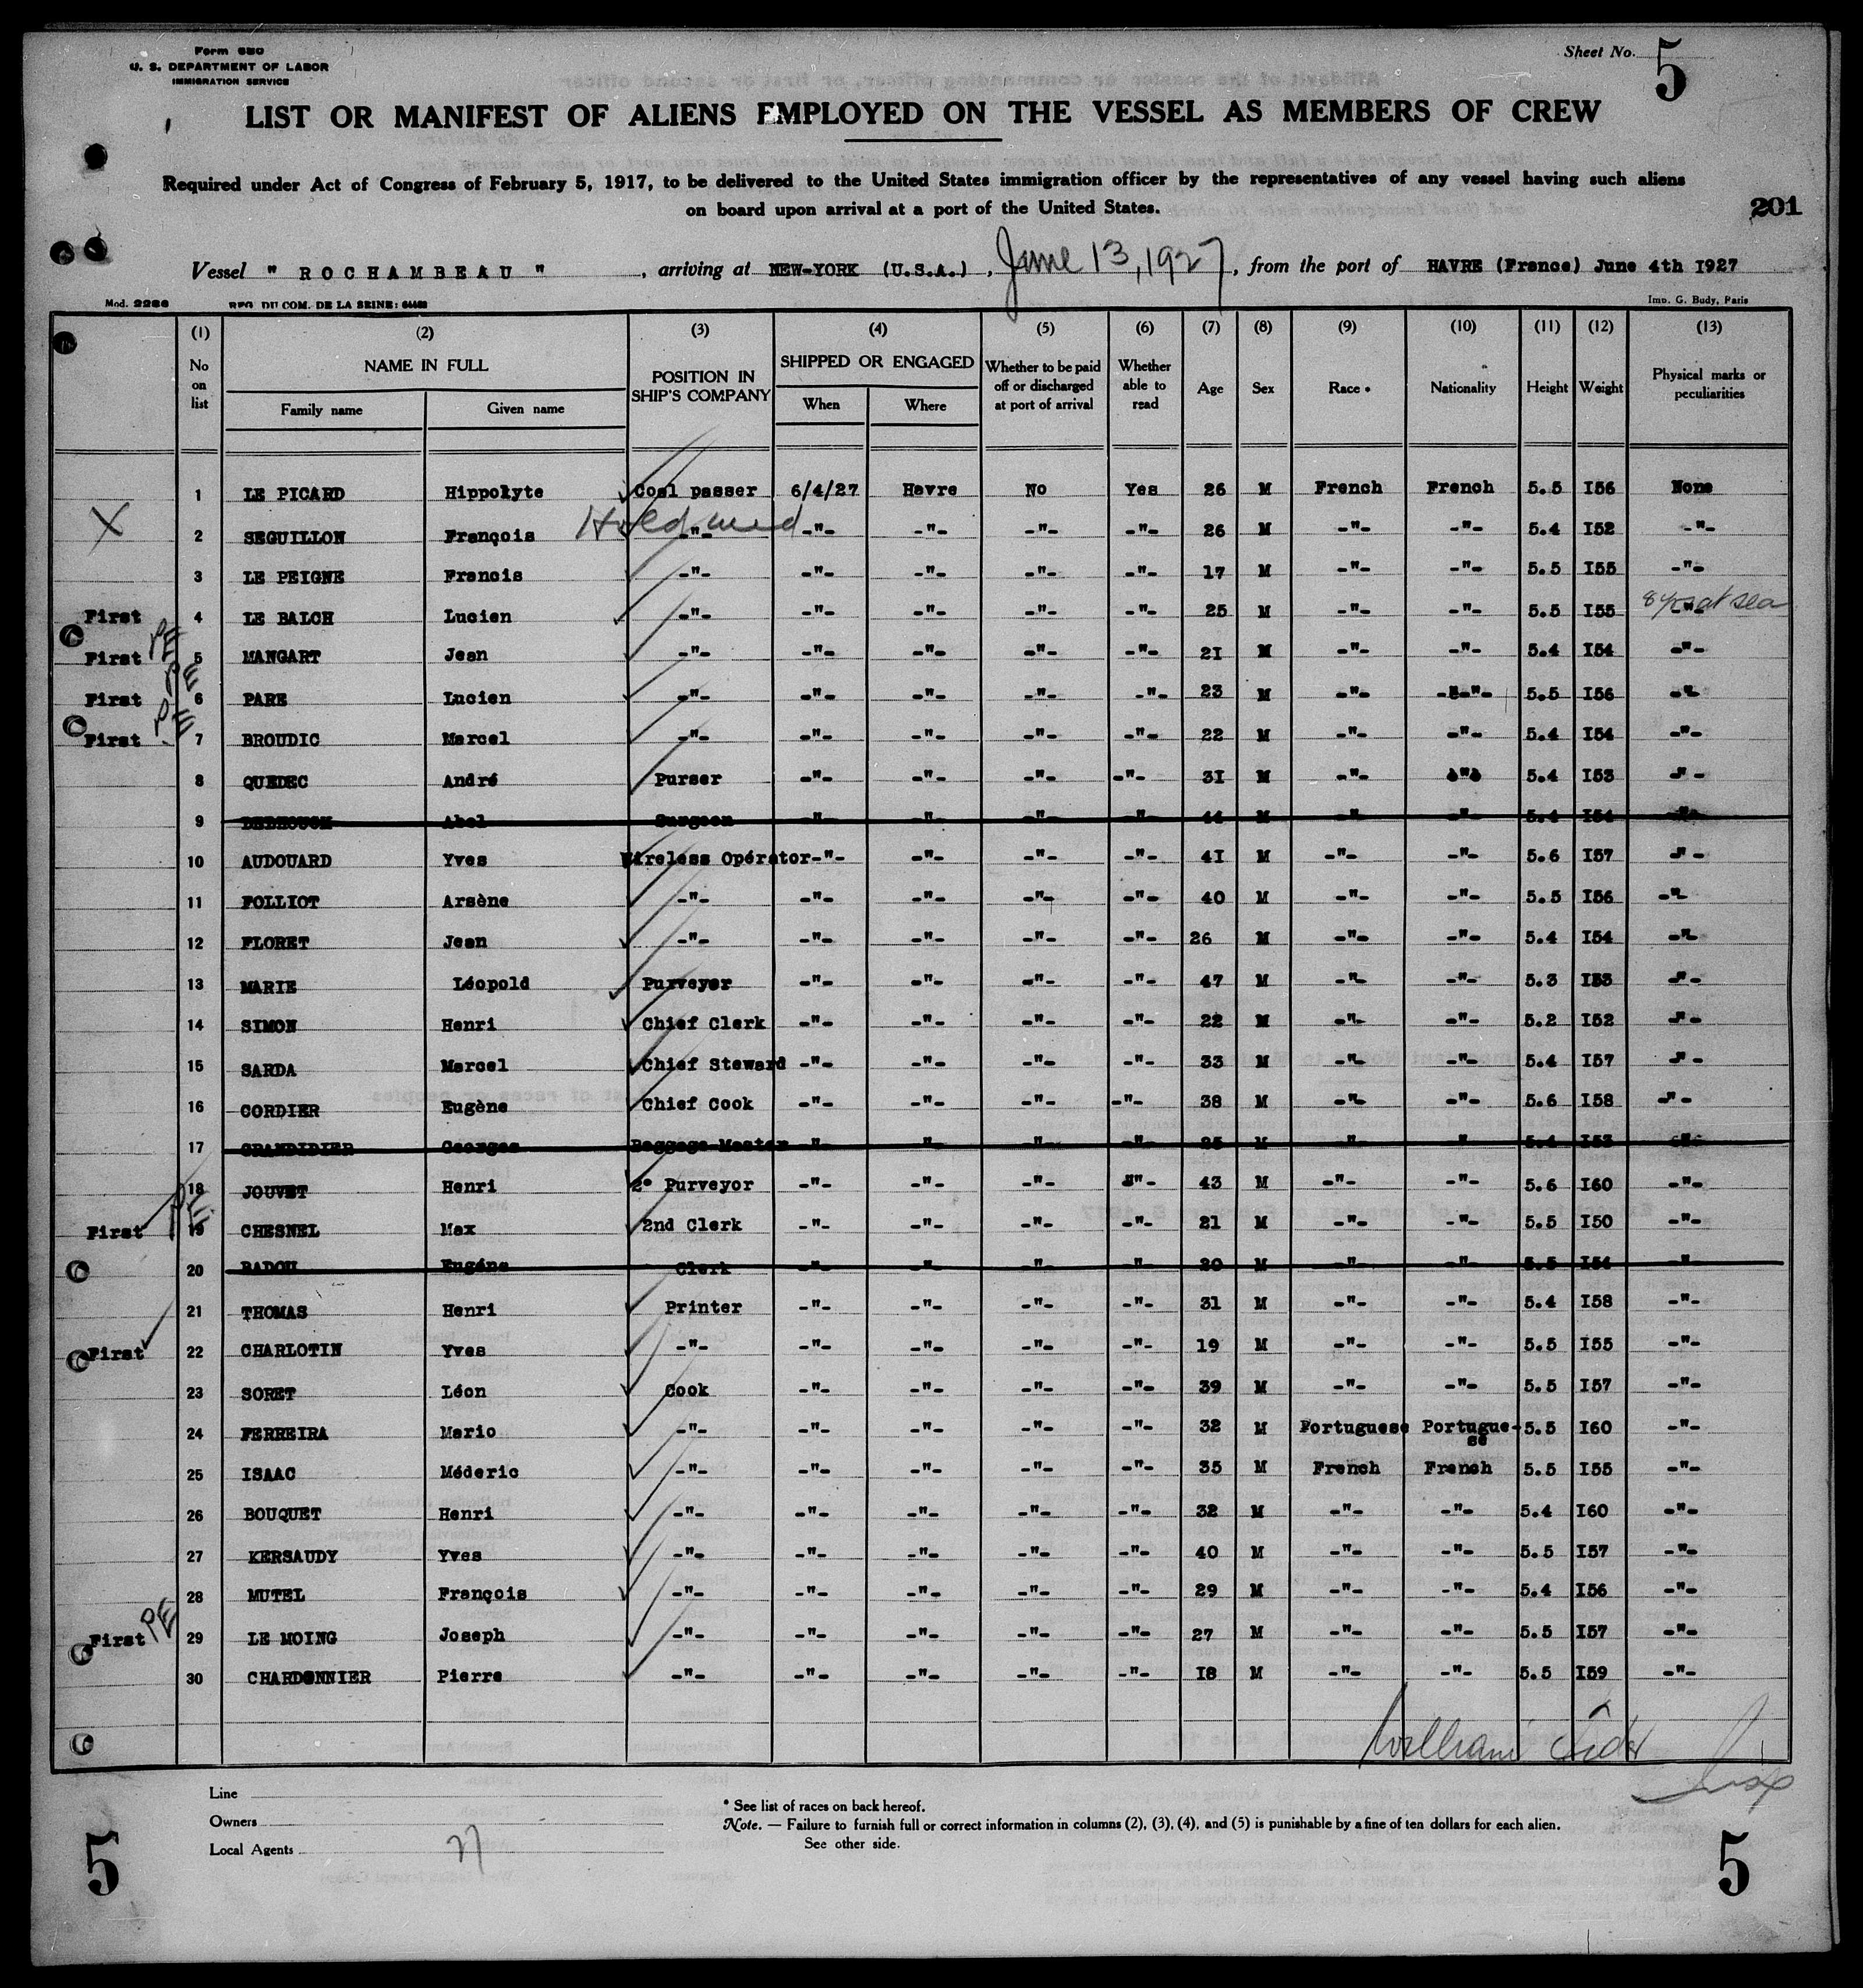 Form 680
U. S. DEPARTMENT OF LABOR
IMMIGRATION SERVICE
Sheet No. 5
LIST OR MANIFEST OF ALIENS EMPLOYED ON THE VESSEL AS MEMBERS OF CREW
Required under Act of Congress of February 5, 1917, to be delivered to the United States immigration officer by the representatives of any vessel having such aliens
on board upon arrival at a port of the United States.
201
Vessel " ROCHAMBEAU ", arriving at NEW-YORK (U.S.A.), June 13, 1927, from the port of HAVRE (France) June 4th I927
Mod. 2286 REG. DU COM. DE LA SEINE: Imp. G. Budy, Paris
(1) (2) (3) (4) (5) (6) (7) (8) (9) (10) (11) (12) (13)
No on list NAME IN FULL Family name Given name POSITION IN SHIP'S COMPANY SHIPPED OR ENGAGED When Where Whether to be paid off or discharged at port of arrival Whether able to read Age Sex Race * Nationality Height Weight Physical marks or peculiarities
1 LE PICARD Hippolyte Coal passer 6/4/27 Havre No Yes 26 M French French 5.5 I56 None
X 2 SEGUILLON François -"- -"- -"- -"- -"- 26 M -"- -"- 5.4 I52 -"-
3 LE PEIGNE Francis -"- -"- -"- -"- -"- 17 M -"- -"- 5.5 I55 -"-
First 4 LE BALCH Lucien -"- -"- -"- -"- -"- 25 M -"- -"- 5.5 I55 -"- 8 yrs at sea
First PE 5 MANGART Jean -"- -"- -"- -"- -"- 2I M -"- -"- 5.4 I54 -"-
First PE 6 PARE Lucien -"- -"- -"- -"- -"- 23 M -"- -"- 5.5 I56 -"-
First PE 7 BROUDIC Marcel -"- -"- -"- -"- -"- 22 M -"- -"- 5.4 I54 -"-
8 QUEDEC André Purser -"- -"- -"- -"- 3I M -"- -"- 5.4 I53 -"-
9 Abel Surgeon -"- -"- -"- -"- 44 M -"- -"- 5.4 I54 -"-
10 AUDOUARD Yves Wireless Opérator -"- -"- -"- -"- 4I M -"- -"- 5.6 I57 -"-
11 FOLLIOT Arsène -"- -"- -"- -"- -"- 40 M -"- -"- 5.5 I56 -"-
12 FLORET Jean -"- -"- -"- -"- -"- 26 M -"- -"- 5.4 I54 -"-
13 MARIE Léopold Purveyor -"- -"- -"- -"- 47 M -"- -"- 5.3 I53 -"-
14 SIMON Henri Chief Clerk -"- -"- -"- -"- 22 M -"- -"- 5.2 I52 -"-
15 SARDA Marcel Chief Steward -"- -"- -"- -"- 33 M -"- -"- 5.4 I57 -"-
16 CORDIER Eugène Chief Cook -"- -"- -"- -"- 38 M -"- -"- 5.6 I58 -"-
17 GRANDIDIER Georges Baggage Master -"- -"- -"- -"- 25 M -"- -"- 5.4 I53 -"-
18 JOUVET Henri 2° Purveyor -"- -"- -"- -"- 43 M -"- -"- 5.6 I60 -"-
First PE 19 CHESNEL Max 2nd Clerk -"- -"- -"- -"- 21 M -"- -"- 5.5 I50 -"-
20 BADOU Eugéne Clerk -"- -"- -"- -"- 20 M -"- -"- 5.5 I54 -"-
21 THOMAS Henri Printer -"- -"- -"- -"- 31 M -"- -"- 5.4 I58 -"-
First 22 CHARLOTIN Yves -"- -"- -"- -"- -"- 19 M -"- -"- 5.5 I55 -"-
23 SORET Léon Cook -"- -"- -"- -"- 39 M -"- -"- 5.5 I57 -"-
24 FERREIRA Mario -"- -"- -"- -"- -"- 32 M Portuguese Portugue-se 5.5 I60 -"-
25 ISAAC Méderic -"- -"- -"- -"- -"- 35 M French French 5.5 I55 -"-
26 BOUQUET Henri -"- -"- -"- -"- -"- 32 M -"- -"- 5.4 I60 -"-
27 KERSAUDY Yves -"- -"- -"- -"- -"- 40 M -"- -"- 5.5 I57 -"-
28 MUTEL François -"- -"- -"- -"- -"- 29 M -"- -"- 5.4 I56 -"-
First PE 29 LE MOING Joseph -"- -"- -"- -"- -"- 27 M -"- -"- 5.5 I57 -"-
30 CHARDONNIER Pierre -"- -"- -"- -"- -"- I8 M -"- -"- 5.5 I59 -"-
William
Line
Owners
Local Agents
* See list of races on back hereof.
Note. — Failure to furnish full or correct information in columns (2), (3), (4), and (5) is punishable by a fine of ten dollars for each alien.
See other side.
5 5